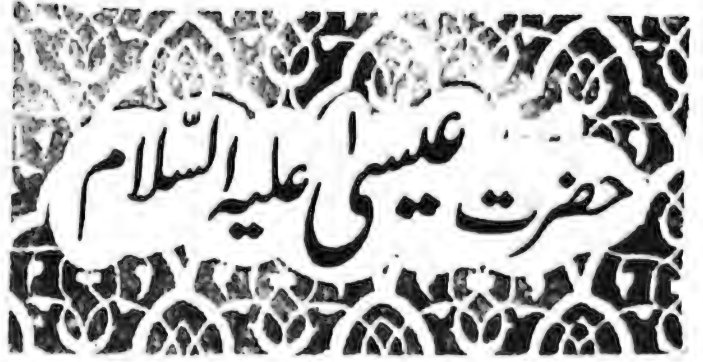 حضرت عیسیٰ علیہ السّلام